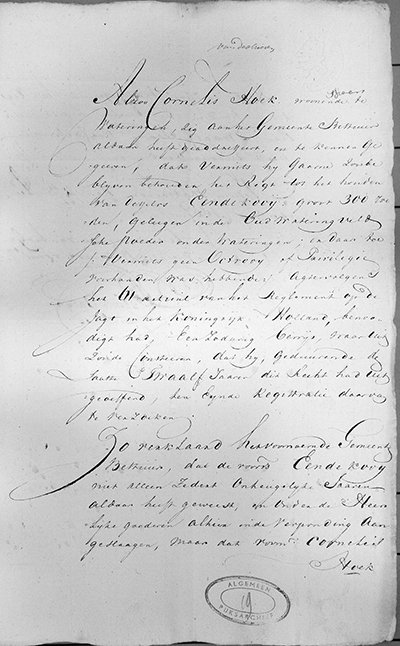 van desleven
Alzoo Cornelis Hoek woonende te
Wateringen, zig aan het Gemeente Bestuur
aldaar heeft geaddresseert, en te kennen ge
geeven, dat Vermits hij gaarn zoude
blijven behouden het Regt tot het houden
van desselvs Eendekooy groot 300 Roe
den, geleegen in de Oud Wateringveld
sche Polder onder Wateringen; en daar toe
Vermits geen Octrooy of Privilegie
voorhanden was, hebbende agtervolgens
het 61 articul van het Reglement op de
Jagt in het Koningryk Holland, benoo
digt had, Een zodanig bewys, waar uit
zoude Consteeren, dat hy, geduurende de
laatste Twaalf Jaaren dit Recht had uit
geoeffend, ten eynde Registratie daar van
te verzoeken
Zo verklaard het voornoemde Gemeente
Bestuur, dat de voorn. Eendekooy
niet alleen zedert onheugelyke Jaaren
aldaar heeft geweest, en onder de Heer
lyke goederen alhier in de verponding aan
geslaagen, maar dat voorn. Cornelis
Hoek
ALGEMEEN
19
RYKSARCHIEF